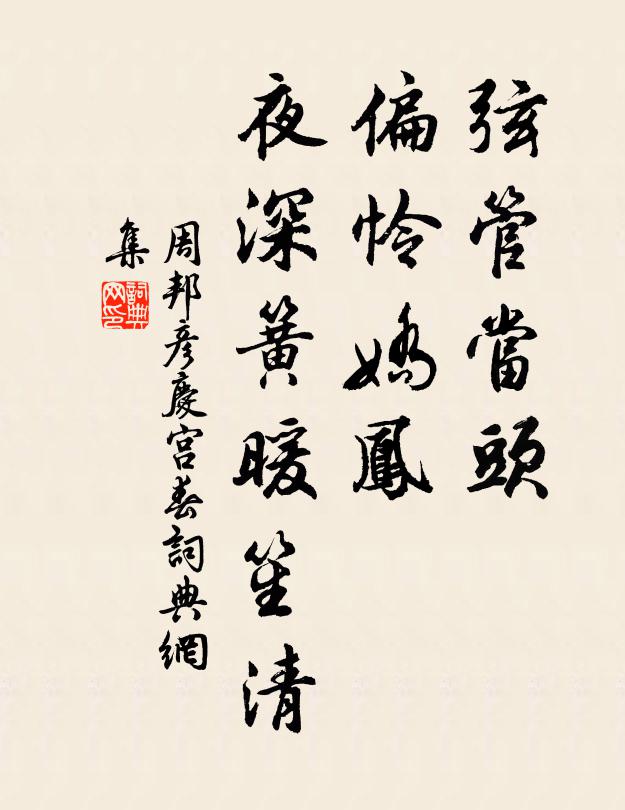 弦管當頭
偏怜嬌鳳
夜深簧暖笙清
周邦彦慶宫春詞典網
集
詞典
网印